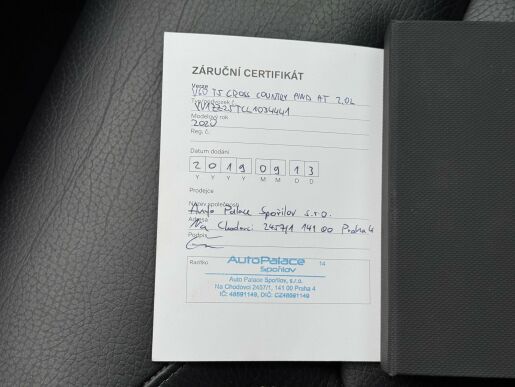 ZÁRUČNÍ CERTIFIKÁT
Verze
V60 T5 CROSS COUNTRY AWD AT 2.0L
Modelový rok
2020
Reg. č.
Datum dodání
2 0 1 9 0 9 1 3
Y Y Y Y M M D D
Prodejce
Název společnosti
Auto Palace Spořilov s.r.o.
Adresa
Na Chodovci 2457/1 141 00 Praha 4
Podpis
Razítko
AutoPalace 14
Spořilov
Auto Palace Spořilov, s.r.o.
Na Chodovci 2457/1, 141 00 Praha 4
IČ: 48591149, DIČ: CZ48591149